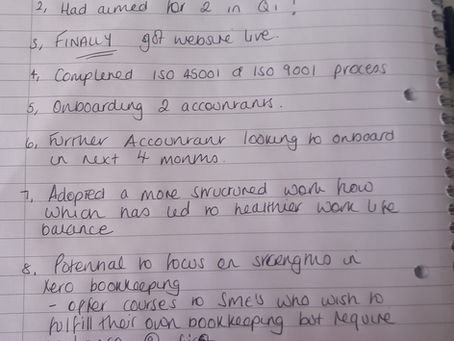 2, Had aimed for 2 in Q1!
3, FINALLY got website live.
4, Completed ISO 45001 & ISO 9001 process
5, Onboarding 2 accountants.
6, Further Accountant looking to onboard
in next 4 months.
7, Adopted a more structured work flow
which has led to healthier work life
balance
8, Potential to focus on strengths in
Xero bookkeeping
- offer courses to SME's who wish to
fulfill their own bookkeeping but require